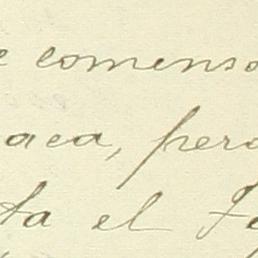 e comenso
aca, pero
ta el